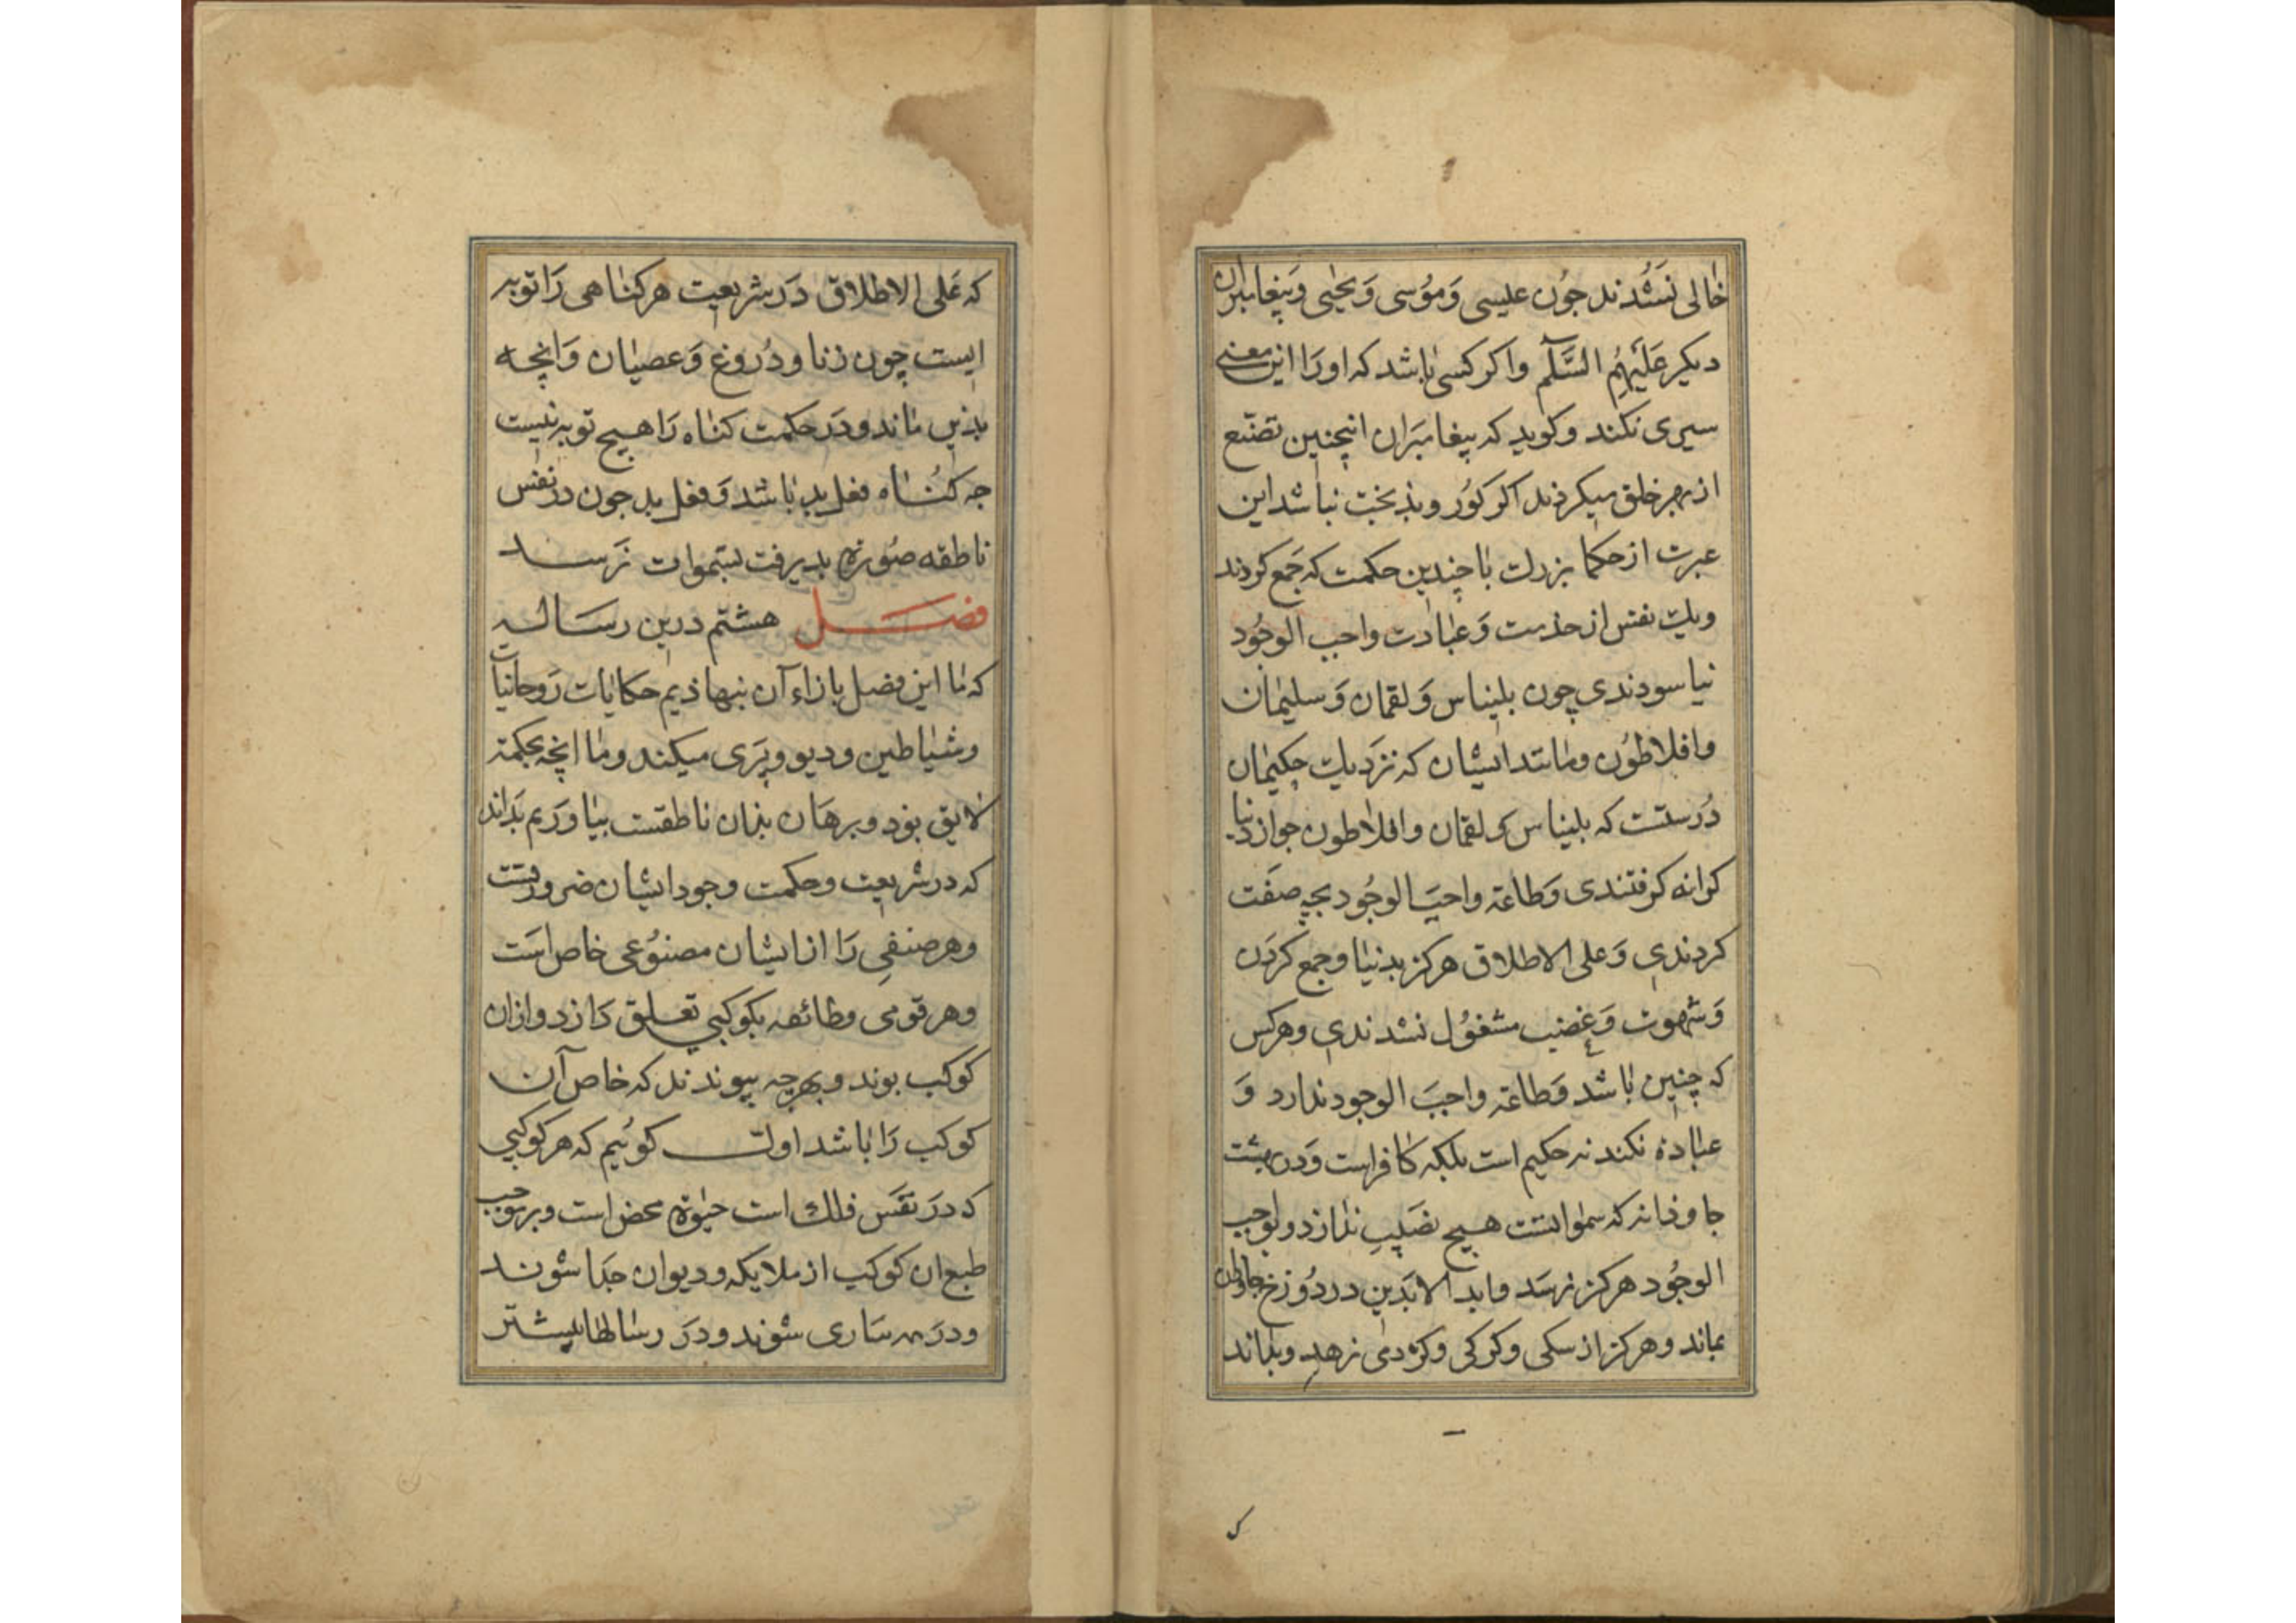 خالی نشدند جون عیسی و موسی و یحیی و پیغامبران
دیکر علیهم السلم واکر کسی باشد که اورا این معنی
سیری نکند و کوید که پیغامبران اینچنین تضیع
از بهر خلق میکردند اکر کور و بذبخت نباشد این
عبرت از حکما بزرک با چندین حکمت که جمع کردند
ویک نفس از خدمت و عبادت واجب الوجود
نیاسودندی چون بلیناس و لقمان و سلیمان
وافلاطون ومانند ایشان که نزدیک حکیمان
درستست که بلیناس و لقمان وافلاطون جو از دنیا
کرانه کرفتندی وطاعة واجب الوجود بچه صفت
کردندی وعلی الاطلاق هرکز بدنیا وجمع کردن
وشهوت وغضب مشغول نشدندی وهرکس
که چنین باشد وطاعة واجب الوجود ندارد و
عباده نکند نه حکیم است بلکه کافراست ودر بهشت
جاوذانه که سمواتست هیچ نصیب ندارد وبواجب
الوجود هرکز نرسد وابد الابدین در دوزخ جاودان
بماند وهرکز از سکی وکرکی وکژدمی نرهد وبداند
که علی الاطلاق در شریعت هر کناهی را توبه
ایست چون زنا و دروغ و عصیان وانچه
بذین ماند ودر حکمت کناه را هیچ توبه نیست
جه کناه فعل بد باشد وفعل بد جون در نفس
ناطقه صورة بدیرفت بسموات نرسد
فصل هشتم درین رساله
که ما این فصل بازاء آن بنهاذیم حکایات روحانیات
وشیاطین ودیو وپری میکند وما انچه بحکمة
لایق بود وبرهان بذان ناطقست بیاوریم بداند
که در شریعت وحکمت وجود ایشان ضرورتست
وهر صنفی را از ایشان مصنوعی خاص است
وهر قومی وطائفه بکوکبی تعلق دارد وازان
کوکب بوند وبهرجه پیوندند که خاص آن
کوکب را باشد اولت کوئیم که هر کوکبی
که در نفس فلک است حیوة محض است وبر موجب
طبع ان کوکب از ملایکه ودیوان جدا شوند
ودر ساری شوند ودر رسالها بیشتر